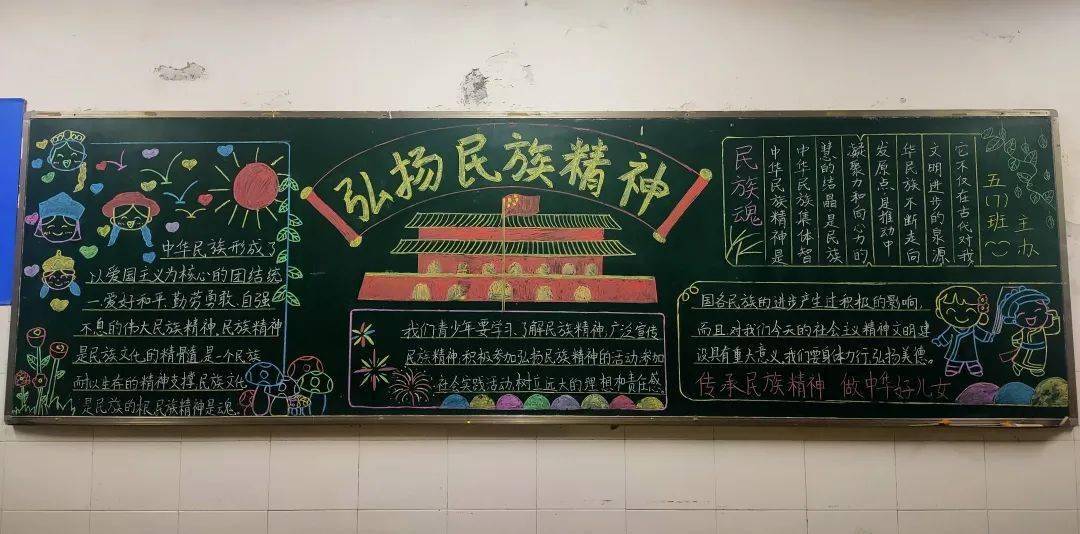 弘扬民族精神
中华民族形成了
以爱国主义为核心的团结统
一.爱好和平.勤劳勇敢.自强
不息的伟大民族精神.民族精神
是民族文化的精骨髓.是一个民族
耐以生存的精神支撑.民族文化
是民族的根.民族精神是魂.
我们青少年要学习.了解民族精神.广泛宣传
民族精神.积极参加弘扬民族精神的活动.参加
社会实践活动.树立远大的理想和责任感.
民族魂
中华民族精神是
中华民族集体智
慧的结晶是民族
凝聚力和向心力的
发原点.是推动中
华民族不断走向
文明进步的泉源
它不仅在古代对我
五(1)班
主办
国各民族的进步产生过积极的影响,
而且对我们今天的社会主义精神文明建
设具有重大意义.我们要身体力行,弘扬美德。
传承民族精神 做中华好儿女